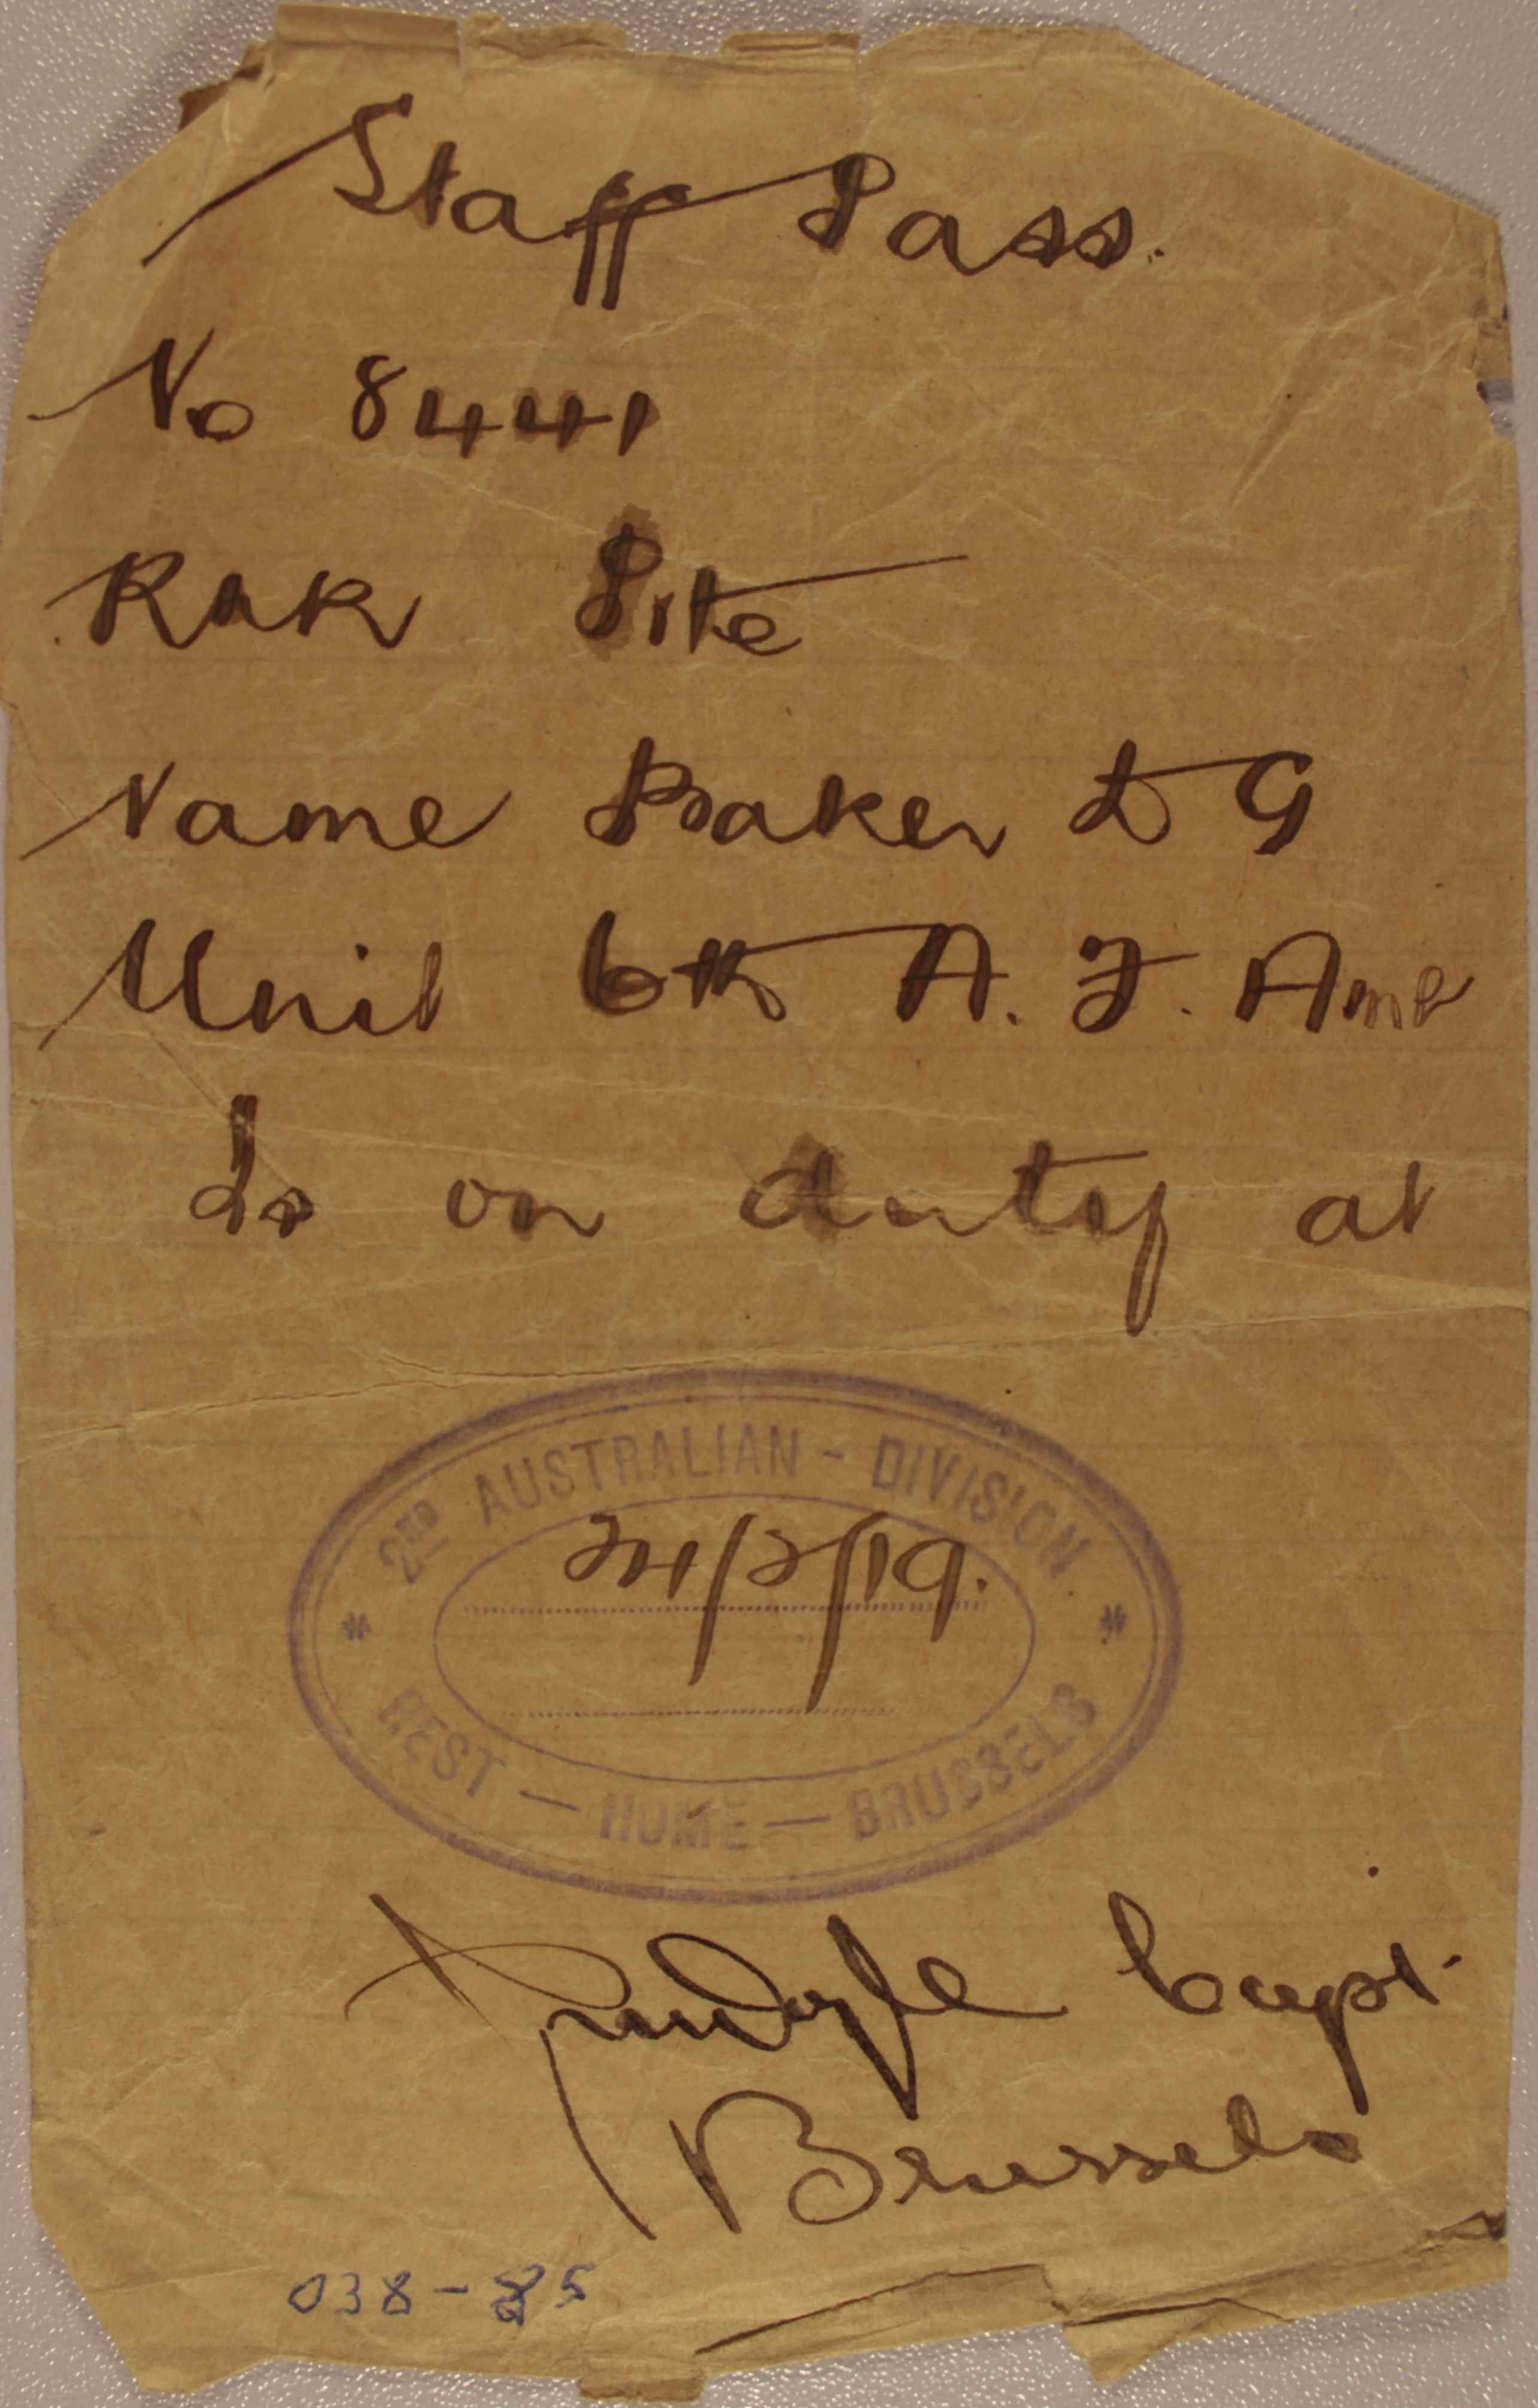 Staff Pass.
No 8441
Rank Pte
Name Baker D G
Unit 6th A. F. Amb
Is on duty at
2ND AUSTRALIAN - DIVISION
24/2/19.
REST - HOME - BRUSSELS
Capt.
Brussels
038-85